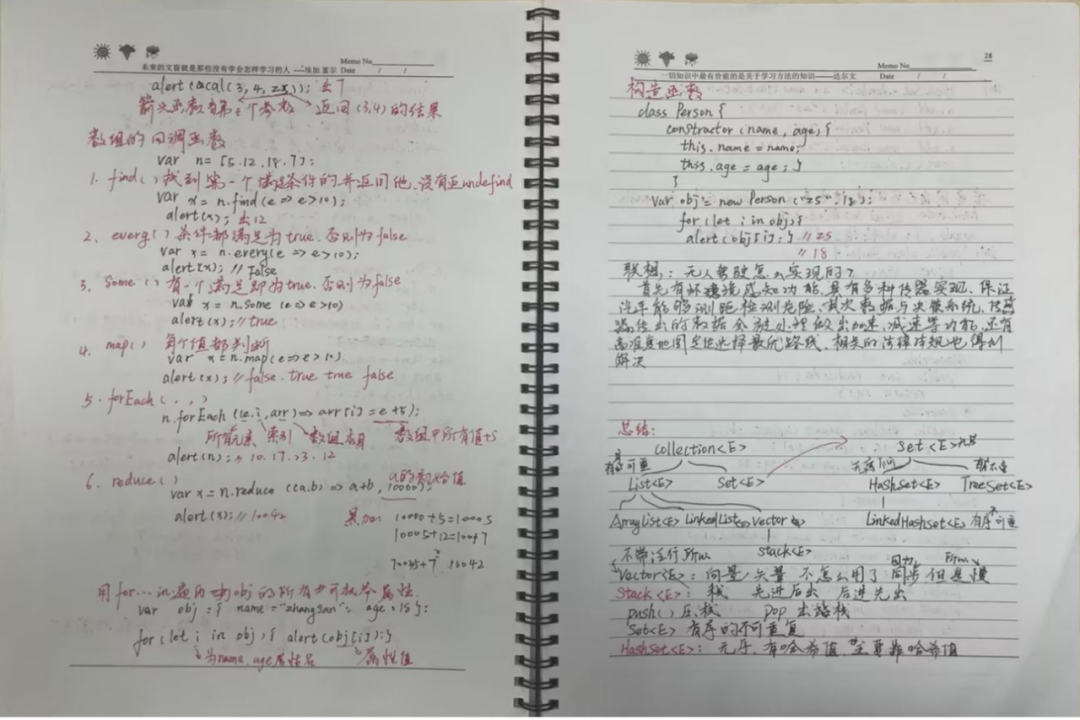 未来的文盲就是那些没有学会怎样学习的人 ——埃加富尔
Memo No.
Date / /
alert(cacal(3,4,zs)); 出7
箭头函数为第三个参数 返回(3,4)的结果
数组的回调函数
var n = [5.12.18.7];
1. find() 找到第一个满足条件的并返回他,没有返undefind
var x = n.find(e => e>10);
alert(x); 出12
2. every() 条件都满足为true.否则为false
var x = n.every(e => e>10);
alert(x); // False
3. Some() 有一个满足即为true.否则为false
var x = n.some(e => e>10)
alert(x); // true
4. map() 每个值都判断
var x = n.map(e=>e>10)
alert(x); // false.true true false
5. forEach( , , )
n.forEach((e.i,arr)=> arr[i] = e+5);
所有元素 索引 数组本身 数组中所有值+5
alert(n); 10.17.23.12
6. reduce() a的初始值
var x = n.reduce((a.b) => a+b, 10000);
alert(x); // 10042
累加: 10000+5=10005
10005+12=10017
10035+7 10042
用for...in遍历obj的所有可枚举属性
var obj = { name = "zhangsan", age = 15 };
for(let i in obj){ alert(obj[i]);}
为name.age属性名 属性值
28
Memo No.
一切知识中最有价值的是关于学习方法的知识——达尔文 Date / /
构造函数
class Person {
constructor(name, age){
this.name = name;
this.age = age; }
}
Var obj = new Person("zs".18);
for(let i in obj){
alert(obj[i]; } // zs
// 18
联想: 无人驾驶怎么实现的?
首先有环境感知功能,具有多种传器实现,保证
汽车能够测距检测危险,其次数据与决策系统,传感
器传出的数据会被处理做出加速,减速等功能,还有
高准度地图定位选择最优路线,相关的法律法规也得到
解决
总结:
Collection<E> Set<E>
有序可重 无序
List<E> Set<E> HashSet<E> TreeSet<E>
ArrayList<E> LinkedList<E> Vector<E> LinkedHashset<E> 有序不可重
Stack<E>
Vector<E>: 向量/矢量 不怎么用了 同步 但是慢
Stack<E>: 栈 先进后出 后进先出
push() 压栈 pop 出栈
Set<E> 有序的不可重复
HashSet<E>: 无序,有哈希值